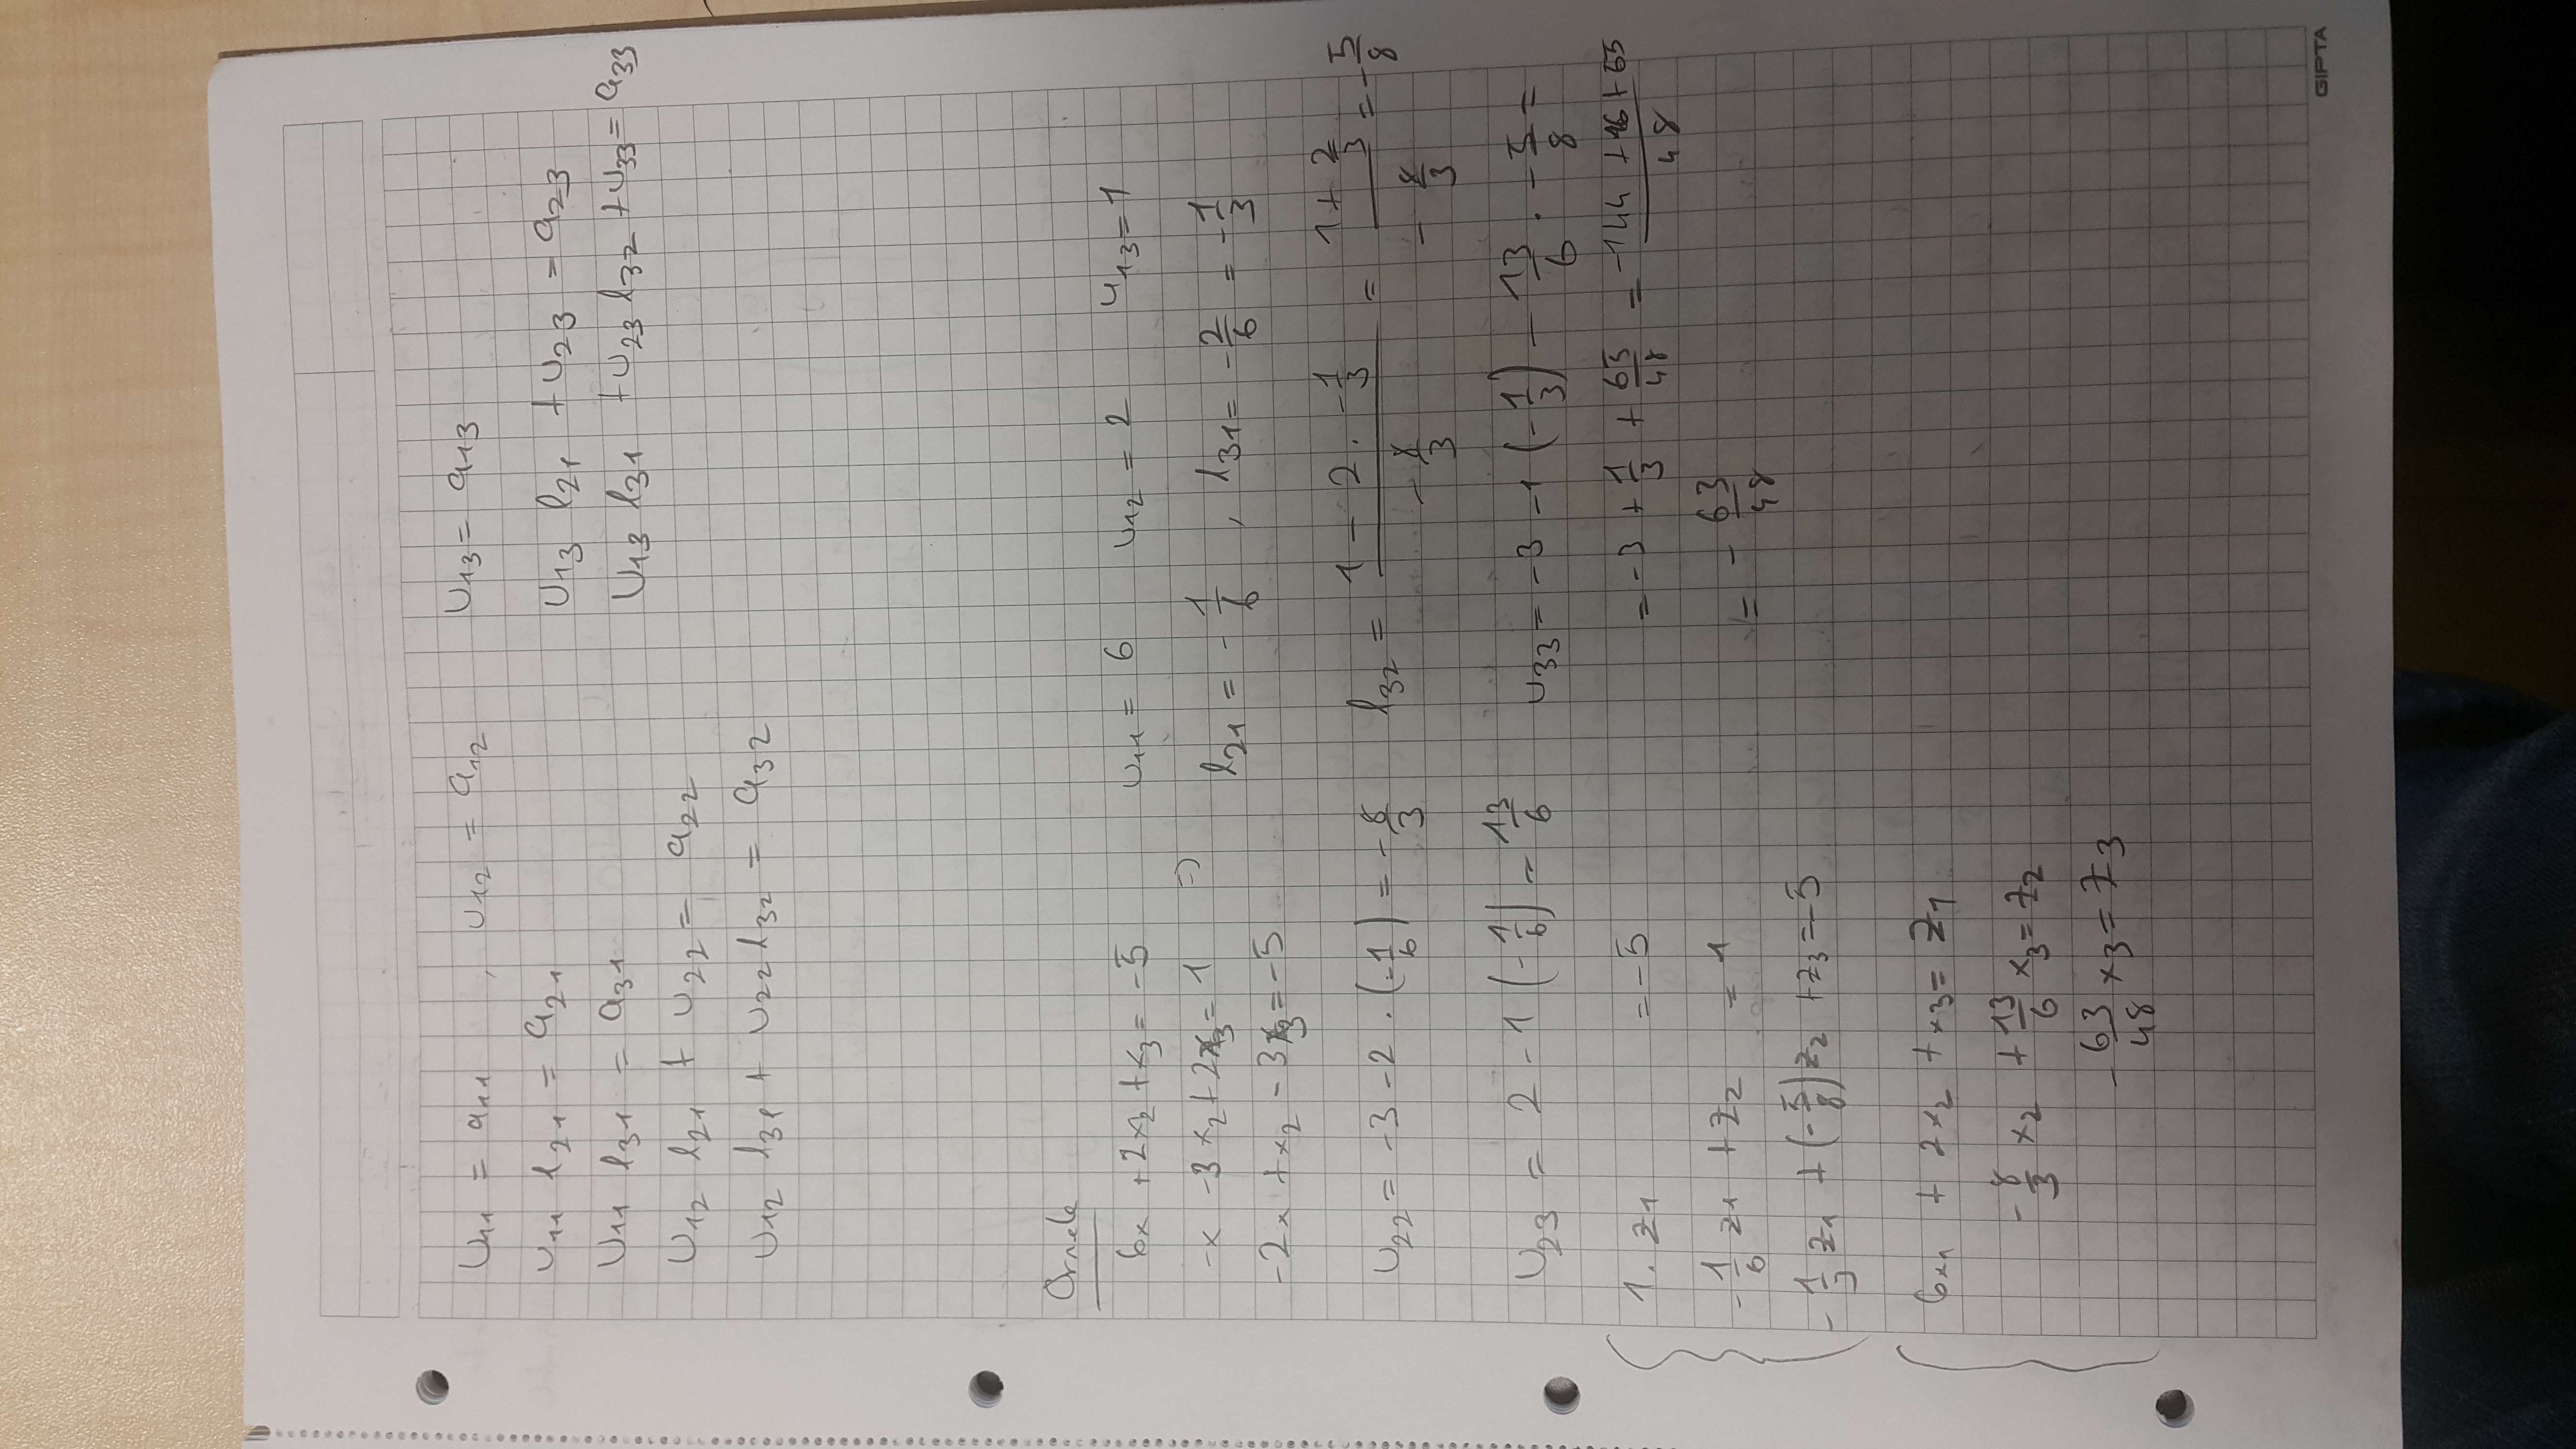 U11 = a11 , U12 = a12 U13 = a13
U11 l21 = a21 U13 l21 + U23 = a23
U11 l31 = a31 U13 l31 + U23 l32 + U33 = a33
U12 l21 + U22 = a22
U12 l31 + U22 l32 = a32
Örnek
6x + 2x2 + x3 = -5 U11 = 6 U12 = 2 U13 = 1
-x -3x2 + 2x3 = 1 => l21 = -1/6 , l31 = -2/6 = -1/3
-2x + x2 - 3x3 = -5
U22 = -3 -2 . (-1/6) = -8/3 l32 = (1 - 2 . -1/3)/(-8/3) = (1 + 2/3)/(-8/3) = -5/8
U23 = 2 - 1 (-1/6) = 13/6 U33 = -3 -1 (-1/3) - 13/6 . -5/8 =
1. z1 = -5 = -3 + 1/3 + 65/48 = (-144 + 16 + 65)/48
-1/6 z1 + z2 = 1 = - 63/48
-1/3 z1 + (-5/8) z2 + z3 = -5
6x1 + 2x2 + x3 = z1
-8/3 x2 + 13/6 x3 = z2
-63/48 x3 = z3
GIPTA